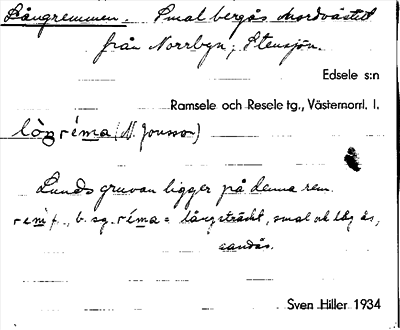 Långremmen. Smal bergås nordväst
från Norrbyn, Stensjön.
Edsele s:n
Ramsele och Resele tg., Västernorrl. l.
(N. Jonsson)
Lundsgruvan ligger på denna rem.
rem f., b. sg. réma = långsträckt, smal och låg ås,
sandås.
Sven Hiller 1934